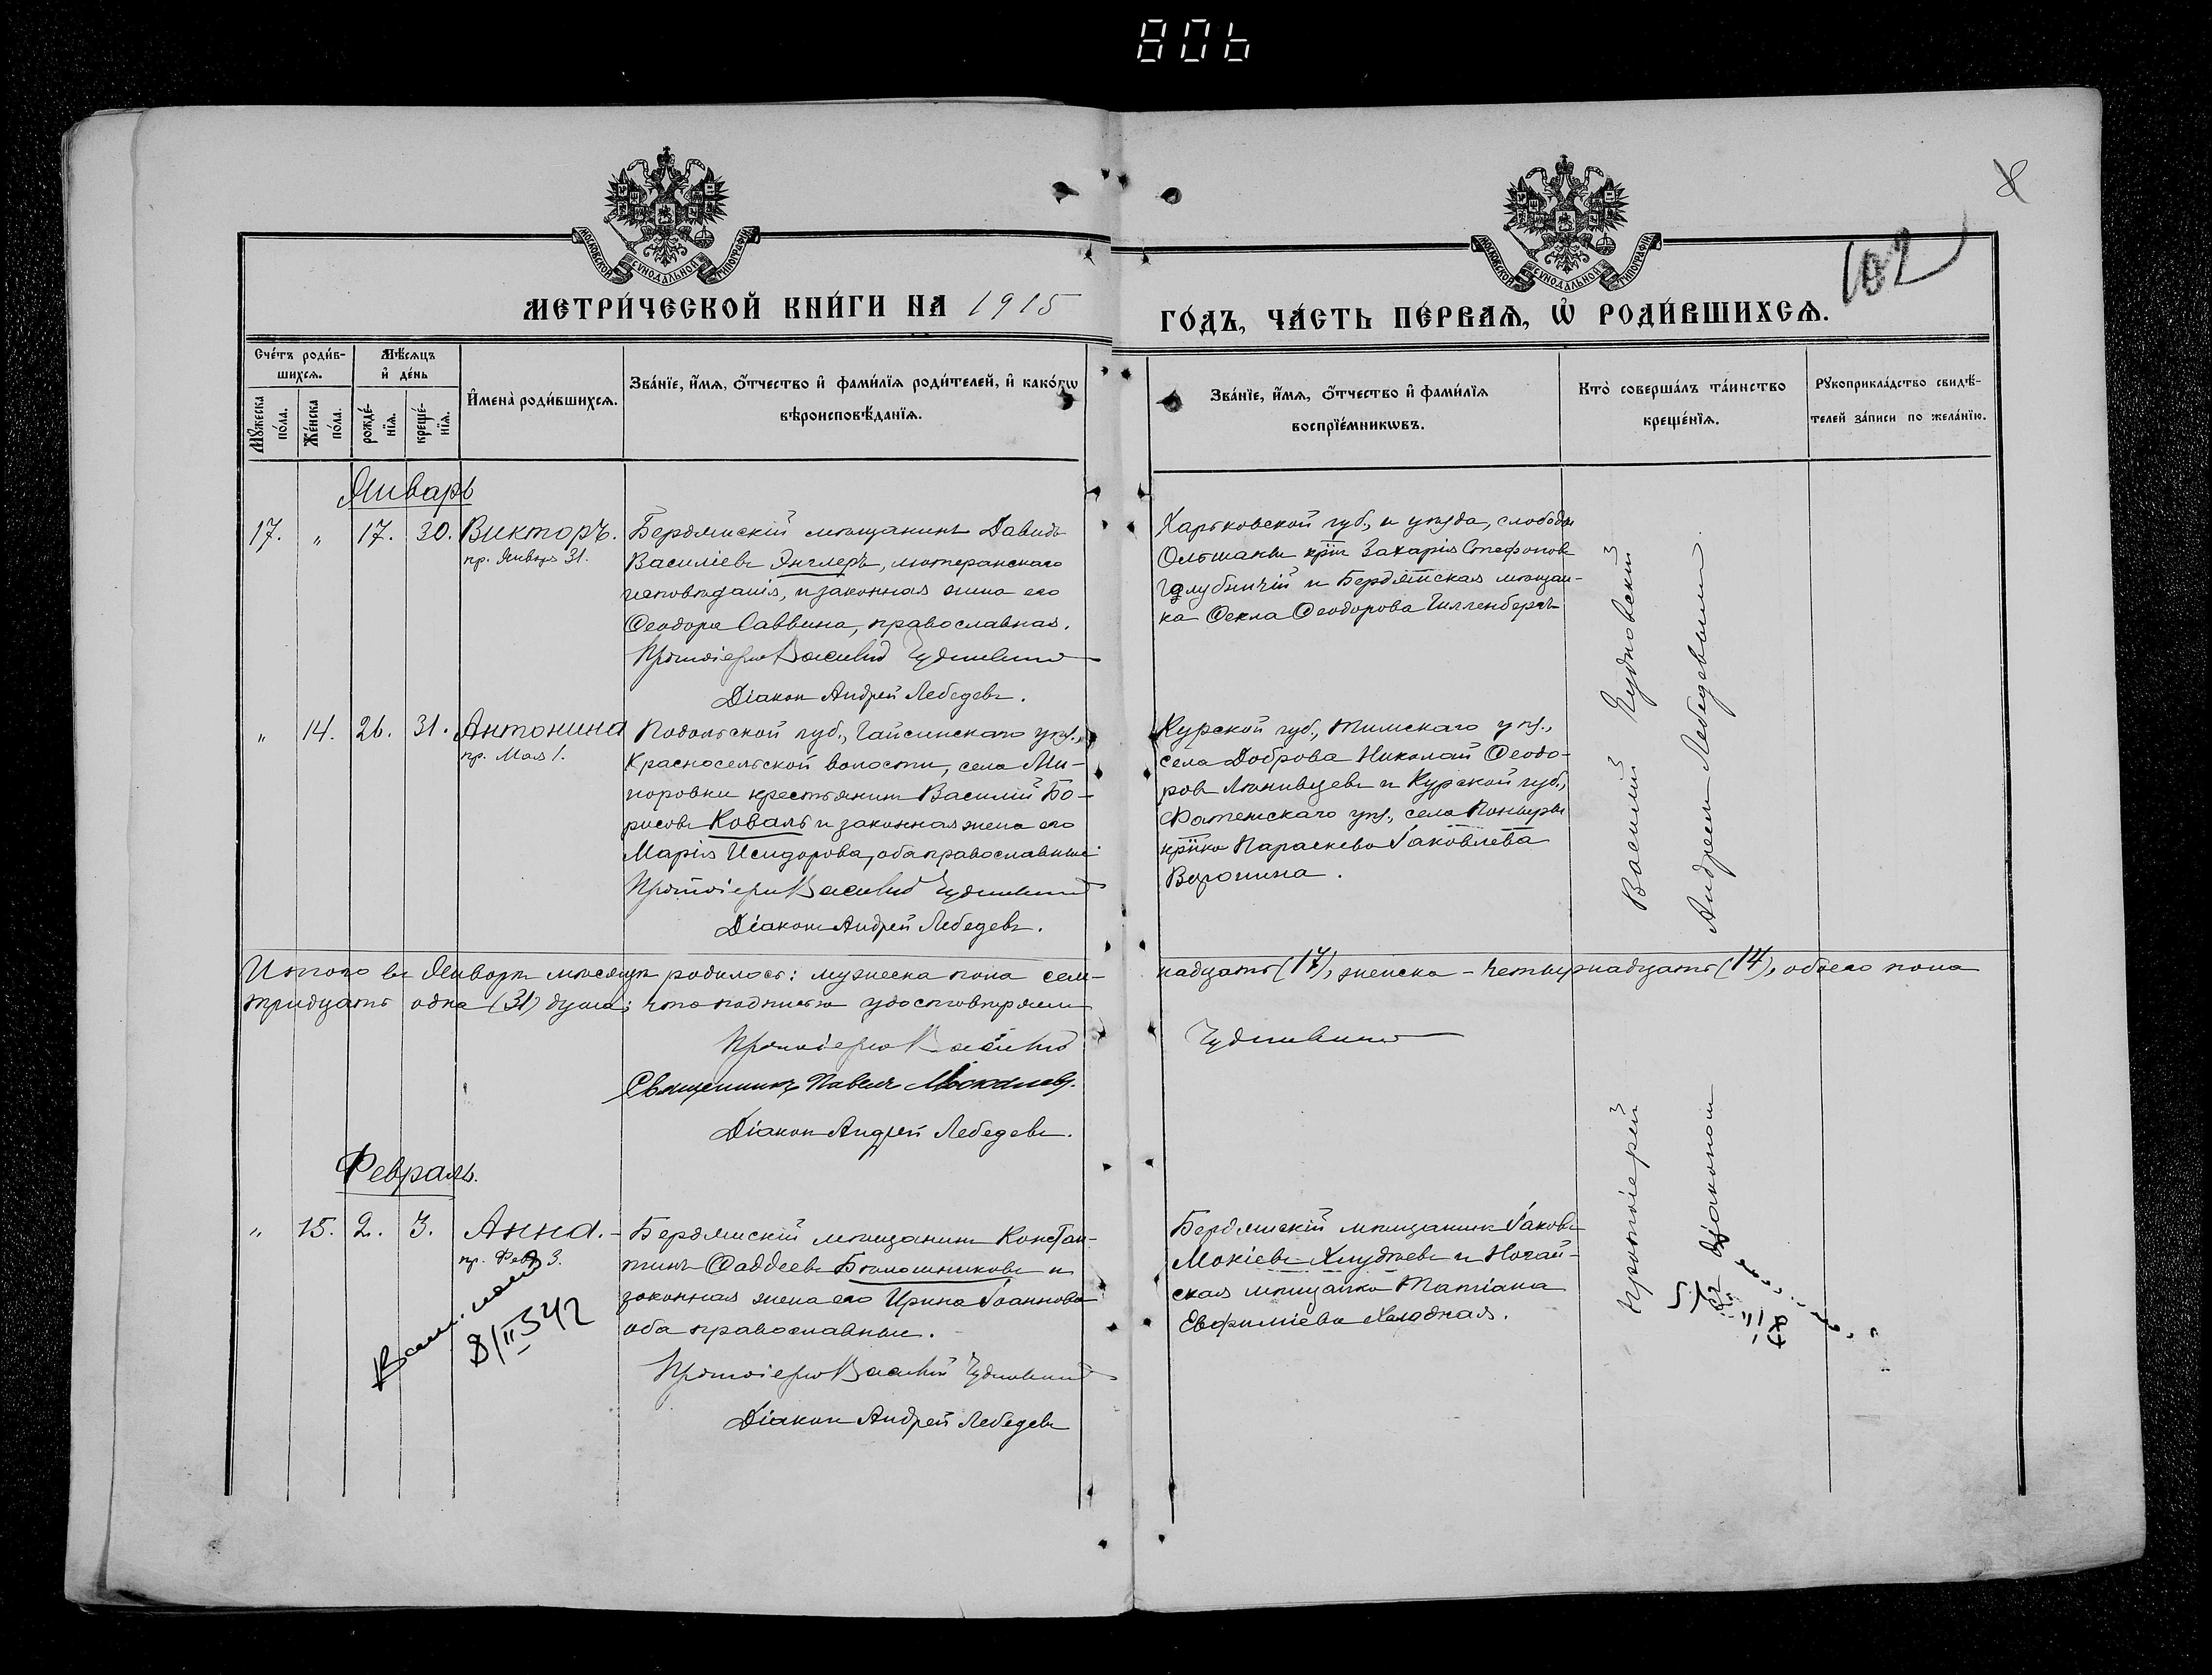 806
8
102
МОСКОВСКОЙ СѴНОДАЛЬНОЙ ТИПОГРАФІИ
МОСКОВСКОЙ СѴНОДАЛЬНОЙ ТИПОГРАФІИ
МЕТРИ́ЧЕСКОЙ КНИ́ГИ НА 1915
ГО́ДЪ, ЧА́СТЬ ПЕ́РВАѦ, Ѡ҆ РОДИ́ВШИХСѦ.
Сче́тъ роди́в-
шихсѧ.
Мѣ́сѧцъ
и҆ де́нь
Мꙋ́жеска
по́ла.
Же́нска
по́ла.
рожде́-
нїѧ.
креще́-
нїѧ.
И҆мена̀ роди́вшихсѧ.
Зва́нїе, и҆́мѧ, ѻ҆́тчество и҆ фами́лїѧ роди́телей, и҆ како́гѡ
вѣроисповѣ́данїѧ.
Зва́нїе, и҆́мѧ, ѻ҆́тчество и҆ фами́лїѧ
воспрїе́мникѡвъ.
Кто̀ соверша́лъ та́инство
креще́нїѧ.
Рꙋкоприкла́дство свидѣ́-
телей за́писи по жела́нїю.
Январь
17. " 17. 30. Викторъ.
пр. Января 31.
Бердянскій мѣщанинъ Давидъ
Василіевъ Энглеръ, лютеранскаго
исповѣданія, и законная жена его
Ѳеодора Саввина, православная.
Протоіерей Василій Чудновский
Діакон Андрей Лебедевъ.
Харьковской губ., и уѣзда, слободы
Ольшаны крⷭ҇нъ Захарія Стефановъ
Голубничій и Бердянская мѣщан-
ка Ѳекла Ѳеодорова Гилленбергъ
" 14. 26. 31. Антонина
пр. Мая 1.
Подольской губ., Гайсинскаго уѣз.,
Красносельской волости, села Ми-
поровки крестьянинъ Василій Бо-
рисовъ Коваль и законная жена его
Марія Исидорова, оба православные
Протоіерей Василій Чудновский
Діаконъ Андрей Лебедевъ.
Курской губ., Тимскаго уѣз.,
села Доброва Николай Ѳеодо-
ровъ и Курской губ.,
Фатежскаго уѣз., села Поныры
Параскева Іаковлева
Воронина.
Итого въ Январѣ мѣсяцѣ родилось: мужеска пола сем-
надцать (17), женска - четырнадцать (14), обоего пола
тридцать одна (31) душа; что подписью удостовѣряемъ
Протоіерей Василій
Чудновский
Священникъ Павелъ
Діаконъ Андрей Лебедевъ.
Февраль.
" 15. 2. 3. Анна.
пр. Фев. 3.
8/II 342
Бердянскій мѣщанинъ Констан-
тинъ Ѳаддеевъ Бѣлошниковъ и
законная жена его Ирина Іоаннова
оба православные.
Протоіерей Василій Чудновский
Діакон Андрей Лебедевъ
Бердянскій мѣщанинъ Іаковъ
Мокіевъ и Ногай-
ская мѣщанка Татіана
Евфиміева Хладная.
Протоіерей Василій Чудновскій
съ Діакономъ Андреемъ Лебедевымъ.